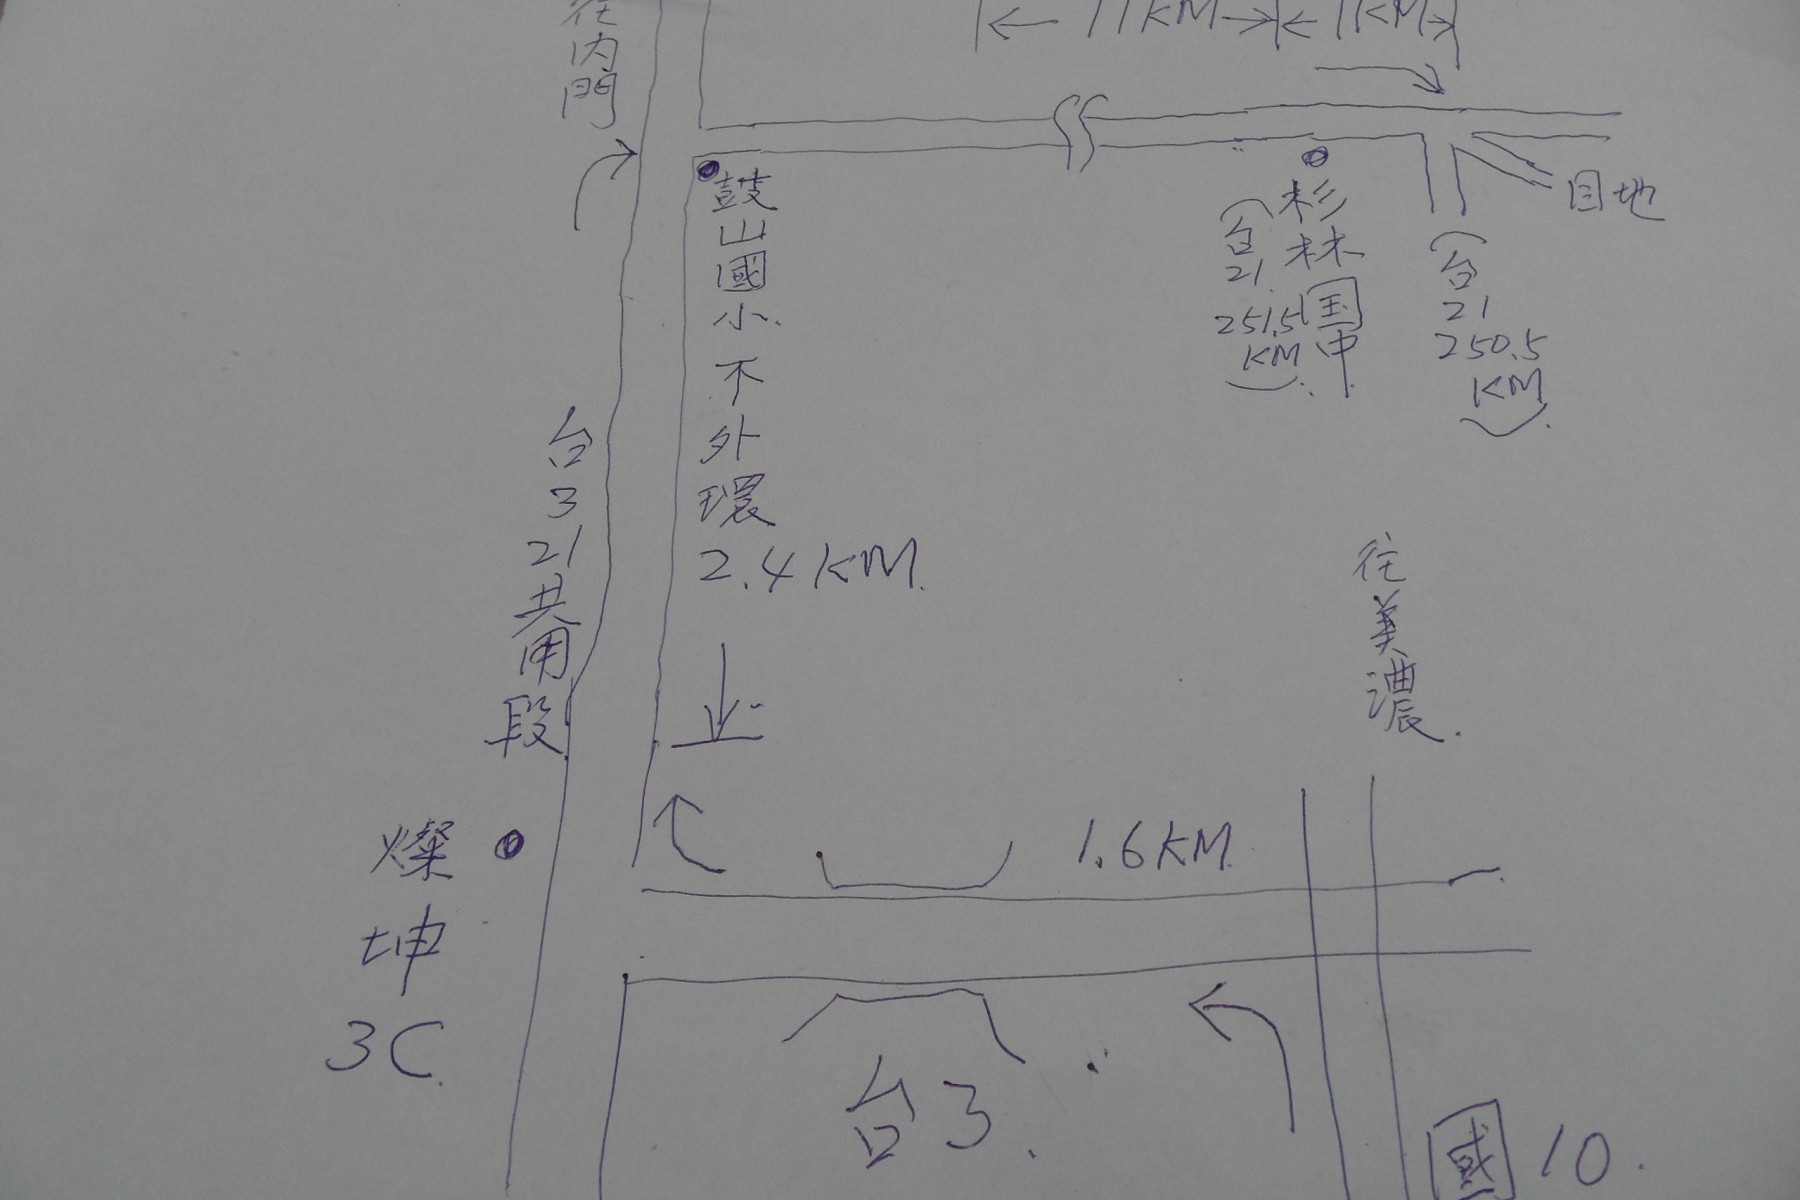 往內門
11KM
1KM
鼓山國小不外環
2.4KM
杉林国中
(台21 251.5KM)
(台21 250.5KM)
目地
台3 21共用段
往美濃
燦坤3C
1.6KM
台3
國10